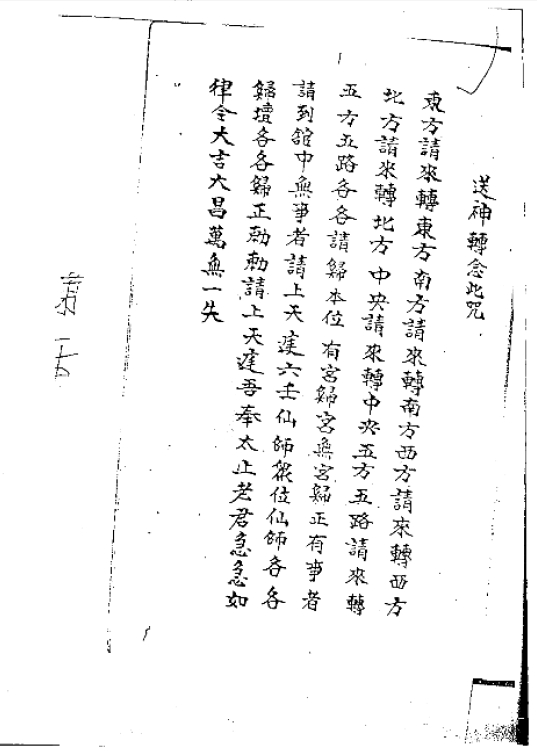 送神轉念此咒
東方請來轉東方南方請來轉南方西方請來轉西方
北方請來轉北方中央請來轉中央五方五路請來轉
五方五路各各請歸本位有宮歸宮無宮歸正有事者
請到舘中無事者請上天庭六壬仙師衆位仙師各各
歸壇各各歸正勅勅請上天庭吾奉太上老君急急如
律令大吉大昌萬無一失